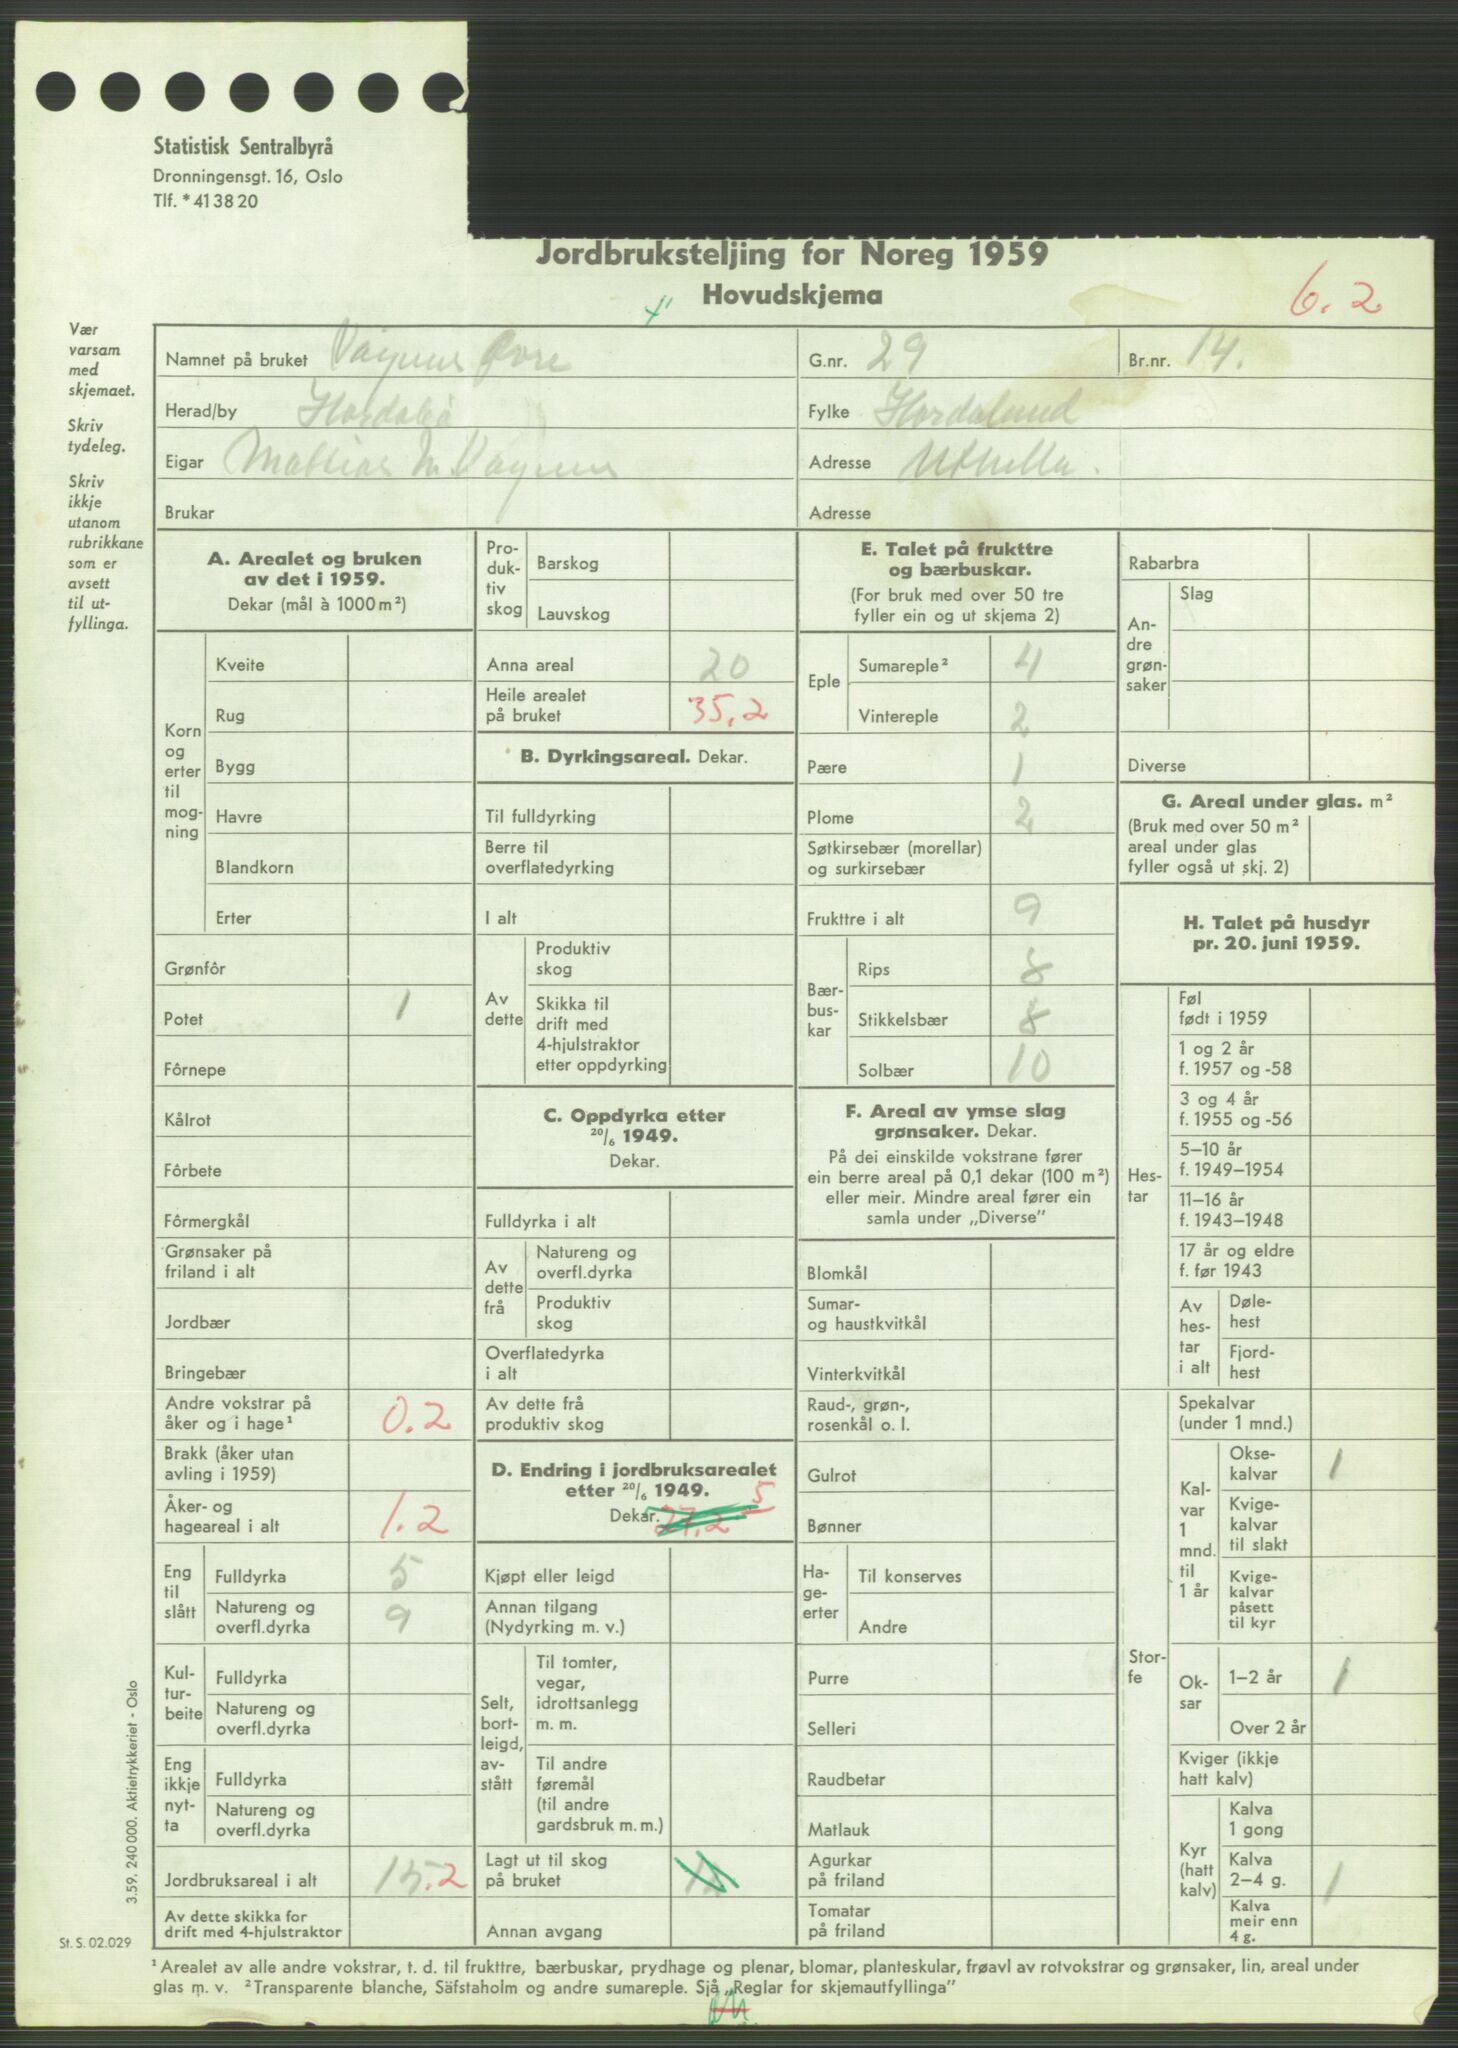 Statistisk Sentralbyrå
Dronningensgt. 16, Oslo
Tlf. * 41 38 20
Jordbruksteljing for Noreg 1959
Hovudskjema
6.2
Vær
varsam
med
skjemaet.
Skriv
tydeleg.
Skriv
ikkje
utanom
rubrikkane
som er
avsett
til ut-
fyllinga.
Namnet på bruket Øvre G.nr. 29 Br.nr. 14.
Herad/by Fylke Hordaland
Eigar Adresse
Brukar Adresse
A. Arealet og bruken
av det i 1959.
Dekar (mål à 1000 m²)
Korn
og
erter
til
mog-
ning
Kveite
Rug
Bygg
Havre
Blandkorn
Erter
Grønfôr
Potet 1
Fôrnepe
Kålrot
Fôrbete
Fôrmergkål
Grønsaker på
friland i alt
Jordbær
Bringebær
Andre vokstrar på
åker og i hage¹ 0.2
Brakk (åker utan
avling i 1959)
Åker- og
hageareal i alt 1.2
Eng
til
slått
Fulldyrka 5
Natureng og
overfl.dyrka 9
Kul-
tur-
beite
Fulldyrka
Natureng og
overfl.dyrka
Eng
ikkje
nyt-
ta
Fulldyrka
Natureng og
overfl.dyrka
Jordbruksareal i alt 15.2
Av dette skikka for
drift med 4-hjulstraktor
Pro-
duk-
tiv
skog
Barskog
Lauvskog
Anna areal 20
Heile arealet
på bruket 35,2
B. Dyrkingsareal. Dekar.
Til fulldyrking
Berre til
overflatedyrking
I alt
Av
dette
Produktiv
skog
Skikka til
drift med
4-hjulstraktor
etter oppdyrking
C. Oppdyrka etter
20/6 1949.
Dekar.
Fulldyrka i alt
Av
dette
frå
Natureng og
overfl.dyrka
Produktiv
skog
Overflatedyrka
i alt
Av dette frå
produktiv skog
D. Endring i jordbruksarealet
etter 20/6 1949.
Dekar. 27.2 5
Kjøpt eller leigd
Annan tilgang
(Nydyrking m. v.)
Selt,
bort-
leigd,
av-
stått
Til tomter,
vegar,
idrottsanlegg
m. m.
Til andre
føremål
(til andre
gardsbruk m. m.)
Lagt ut til skog
på bruket
Annan avgang
E. Talet på frukttre
og bærbuskar.
(For bruk med over 50 tre
fyller ein og ut skjema 2)
Eple
Sumareple² 4
Vintereple 2
Pære 1
Plome 2
Søtkirsebær (morellar)
og surkirsebær
Frukttre i alt 9
Bær-
bus-
kar
Rips 8
Stikkelsbær 8
Solbær 10
F. Areal av ymse slag
grønsaker. Dekar.
På dei einskilde vokstrane fører
ein berre areal på 0,1 dekar (100 m²)
eller meir. Mindre areal fører ein
samla under „Diverse”
Blomkål
Sumar-
og haustkvitkål
Vinterkvitkål
Raud-, grøn-,
rosenkål o. l.
Gulrot
Bønner
Ha-
ge-
erter
Til konserves
Andre
Purre
Selleri
Raudbetar
Matlauk
Agurkar
på friland
Tomatar
på friland
Rabarbra
An-
dre
grøn-
saker
Slag
Diverse
G. Areal under glas. m²
(Bruk med over 50 m²
areal under glas
fyller også ut skj. 2)
H. Talet på husdyr
pr. 20. juni 1959.
Hes-
tar
Føl
født i 1959
1 og 2 år
f. 1957 og -58
3 og 4 år
f. 1955 og -56
5–10 år
f. 1949–1954
11–16 år
f. 1943–1948
17 år og eldre
f. før 1943
Av
hes-
tar
i alt
Døle-
hest
Fjord-
hest
Stor-
fe
Spekalvar
(under 1 mnd.)
Kal-
var
1
mnd.
til
1 år
Okse-
kalvar 1
Kvige-
kalvar
til slakt
Kvige-
kalvar
påsett
til kyr
Ok-
sar
1–2 år 1
Over 2 år
Kviger (ikkje
hatt kalv)
Kyr
(hatt
kalv)
Kalva
1 gong
Kalva
2–4 g. 1
Kalva
meir enn
4 g.
3.59. 240 000. Aktietrykkeriet - Oslo
St. S. 02.029
¹ Arealet av alle andre vokstrar, t. d. til frukttre, bærbuskar, prydhage og plenar, blomar, planteskular, frøavl av rotvokstrar og grønsaker, lin, areal under
glas m. v. ² Transparente blanche, Säfstaholm og andre sumareple. Sjå „Reglar for skjemautfyllinga”